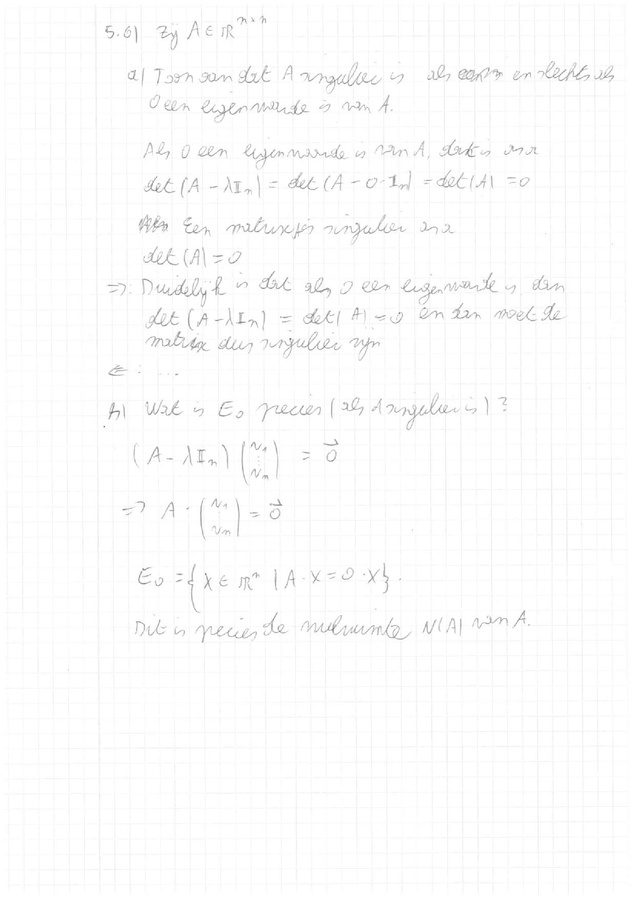 5.6) Zij A ∈ ℝⁿˣⁿ
a) Toon aan dat A singulier is als en slechts als
0 een eigenwaarde is van A.
Als 0 een eigenwaarde is van A, dat is asa
det(A - λIₙ) = det(A - 0·Iₙ) = det(A) = 0
Een matrix is singulier asa
det(A) = 0
=>: Duidelijk is dat als 0 een eigenwaarde is dan
det(A - λIₙ) = det(A) = 0 en dan moet de
matrix dus singulier zijn
<= : ....
b) Wat is E₀ precies (als A singulier is)?
(A - λIₙ) (v₁ ⋮ vₙ) = 0⃗
=> A · (v₁ ⋮ vₙ) = 0⃗
E₀ = {X ∈ ℝⁿ | A·X = 0·X}.
Dit is precies de nulruimte N(A) van A.